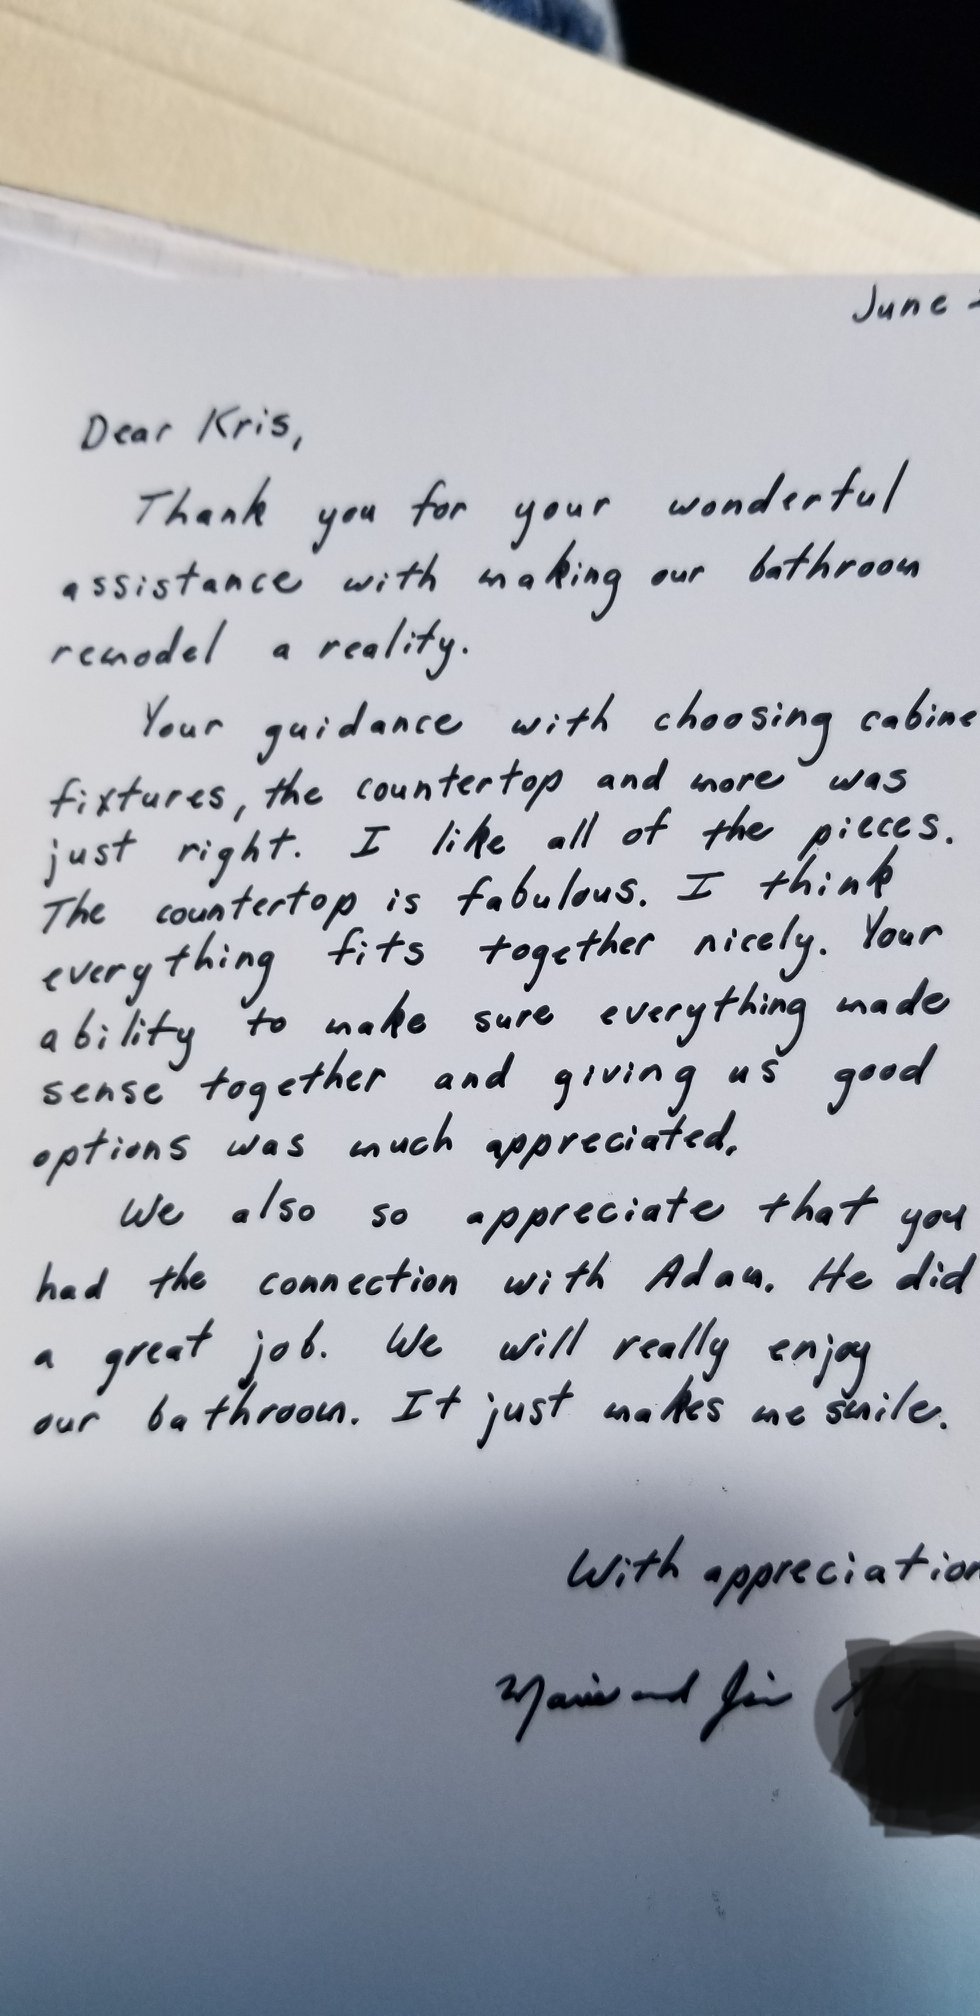 June
Dear Kris,
Thank you for your wonderful
assistance with making our bathroom
remodel a reality.
Your guidance with choosing cabine
fixtures, the countertop and more was
just right. I like all of the pieces.
The countertop is fabulous. I think
everything fits together nicely. Your
ability to make sure everything made
sense together and giving us good
options was much appreciated.
We also so appreciate that you
had the connection with Adam. He did
a great job. We will really enjoy
our bathroom. It just makes me smile.
With appreciation
Marie and Jim